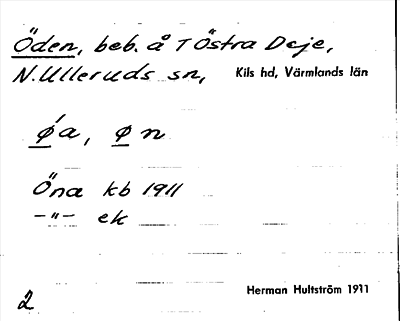 Öden, beb. å T Östra Deje,
N. Ulleruds sn, Kils hd, Värmlands län
ǿa, ø n
Öna kb 1911
–"– ek
2 Herman Hultström 1911